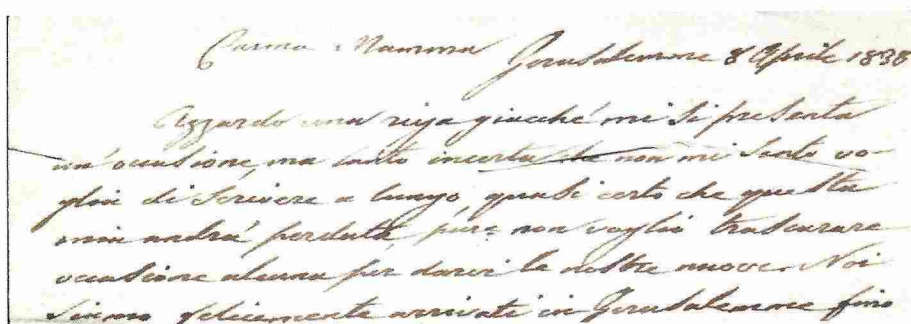 Carma Mamma
Gerusalemme 8 Aprile 1838
Azzardo una riga giacché mi si presenta
un'occasione, ma tanto incerta che non mi sento vo-
glia di scrivere a lungo, quasi certo che questa
mia andrà perduta pure non voglio trascurare
occasione alcuna per darvi le nostre nuove. Noi
siamo felicemente arrivati in Gerusalemme fino